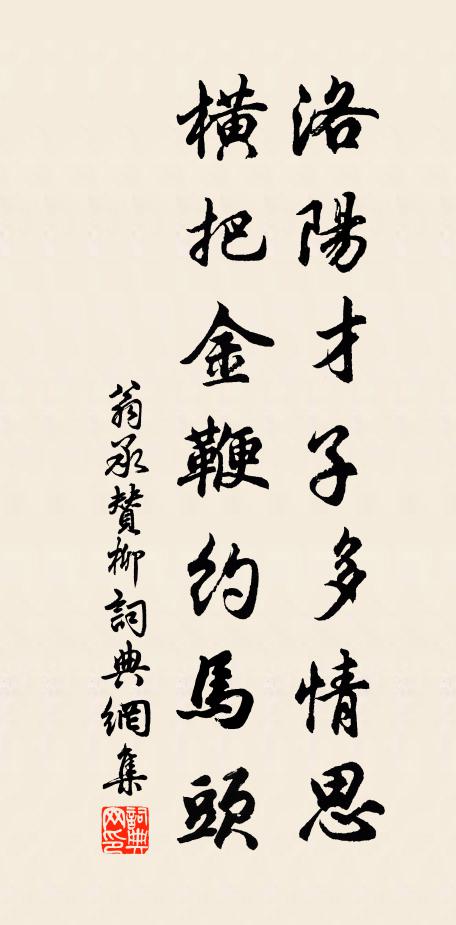 洛陽才子多情思
橫把金鞭約馬頭
翁承贊柳詞典網集
詞典網印